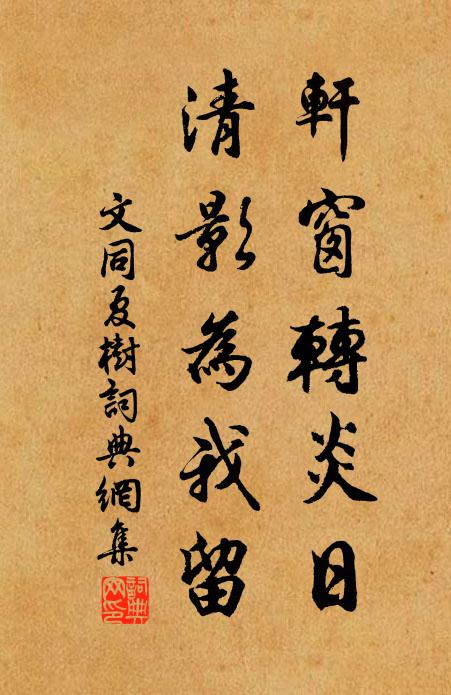 軒窗轉炎日
清影為我留
文同夏樹詞典網集
詞典网印